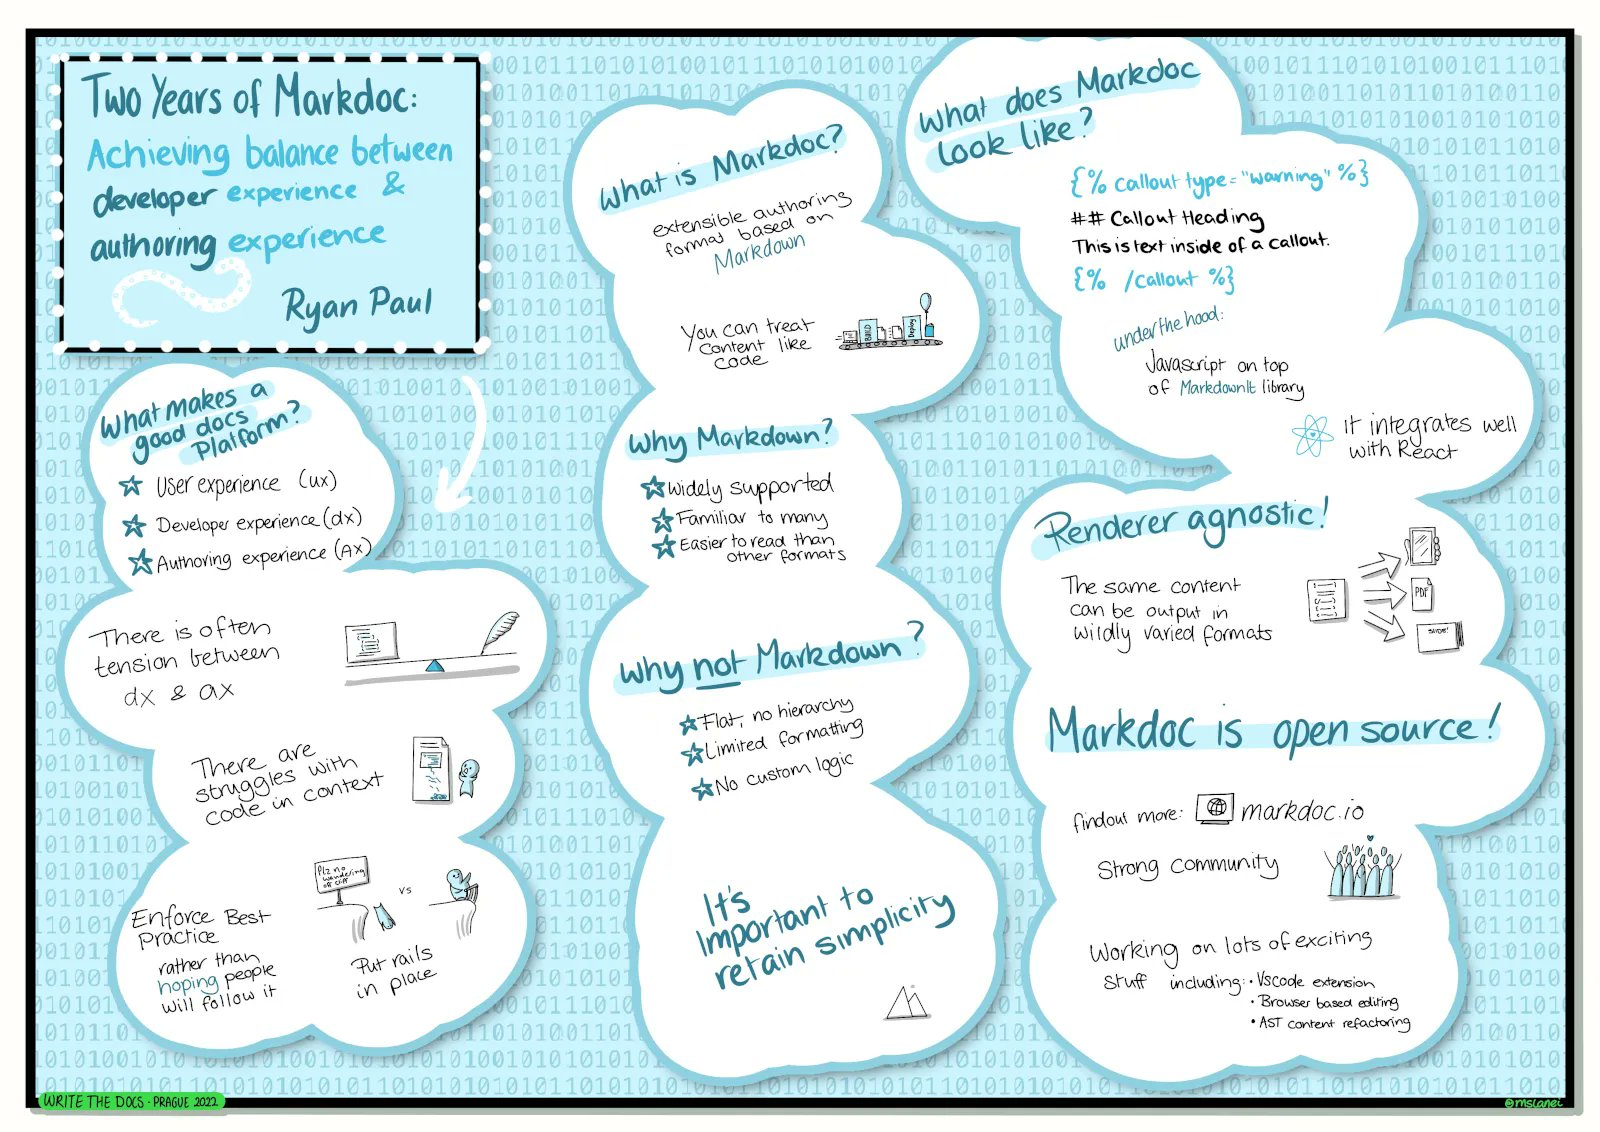 Two Years of Markdoc:
Achieving balance between
developer experience &
authoring experience
Ryan Paul
What makes a
good docs
Platform?
User experience (ux)
Developer experience (dx)
Authoring experience (AX)
There is often
tension between
dx & ax
There are
struggles with
code in context
Enforce Best
Practice
rather than
hoping people
will follow it
Plz no
wandering
off cliff
vs
Put rails
in place
What is Markdoc?
extensible authoring
format based on
Markdown
You can treat
content like
code
BUILD
Deploy
Why Markdown?
Widely supported
Familiar to many
Easier to read than
other formats
Why not Markdown?
Flat, no hierarchy
Limited formatting
No custom logic
It's
Important to
retain simplicity
What does Markdoc
look like?
{% callout type="warning" %}
## Callout Heading
This is text inside of a callout.
{% /callout %}
under the hood:
Javascript on top
of MarkdownIt library
it integrates well
with React
Renderer agnostic!
The same content
can be output in
wildly varied formats
PDF
Markdoc is open source!
find out more: markdoc.io
Strong community
Working on lots of exciting
stuff including: • Vscode extension
• Browser based editing
• AST content refactoring
WRITE THE DOCS · PRAGUE 2022
@mslanei